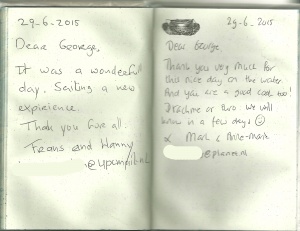 29-6-2015
Dear George,
It was a wonderfull
day. Sailing a new
expirience.
Thank you for all.
Frans and Hanny
29-6-2015
Dear George,
Thank you very much for
this nice day on the water.
And you are a good cook too!
Drachme or two we will
know in a few days ☺
x Mark &
@planet.nl